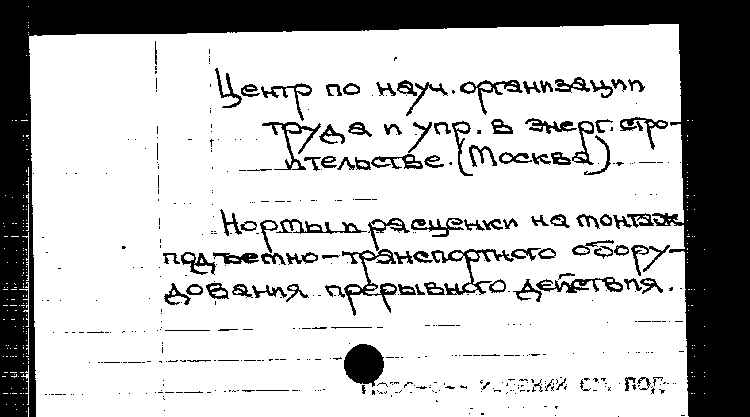 Центр по науч. организации
труда и упр. в энерг. стро-
ительстве. (Москва).
Нормы и расценки на монтаж
подъемно-транспортного обору-
дования прерывного действия.
см. под